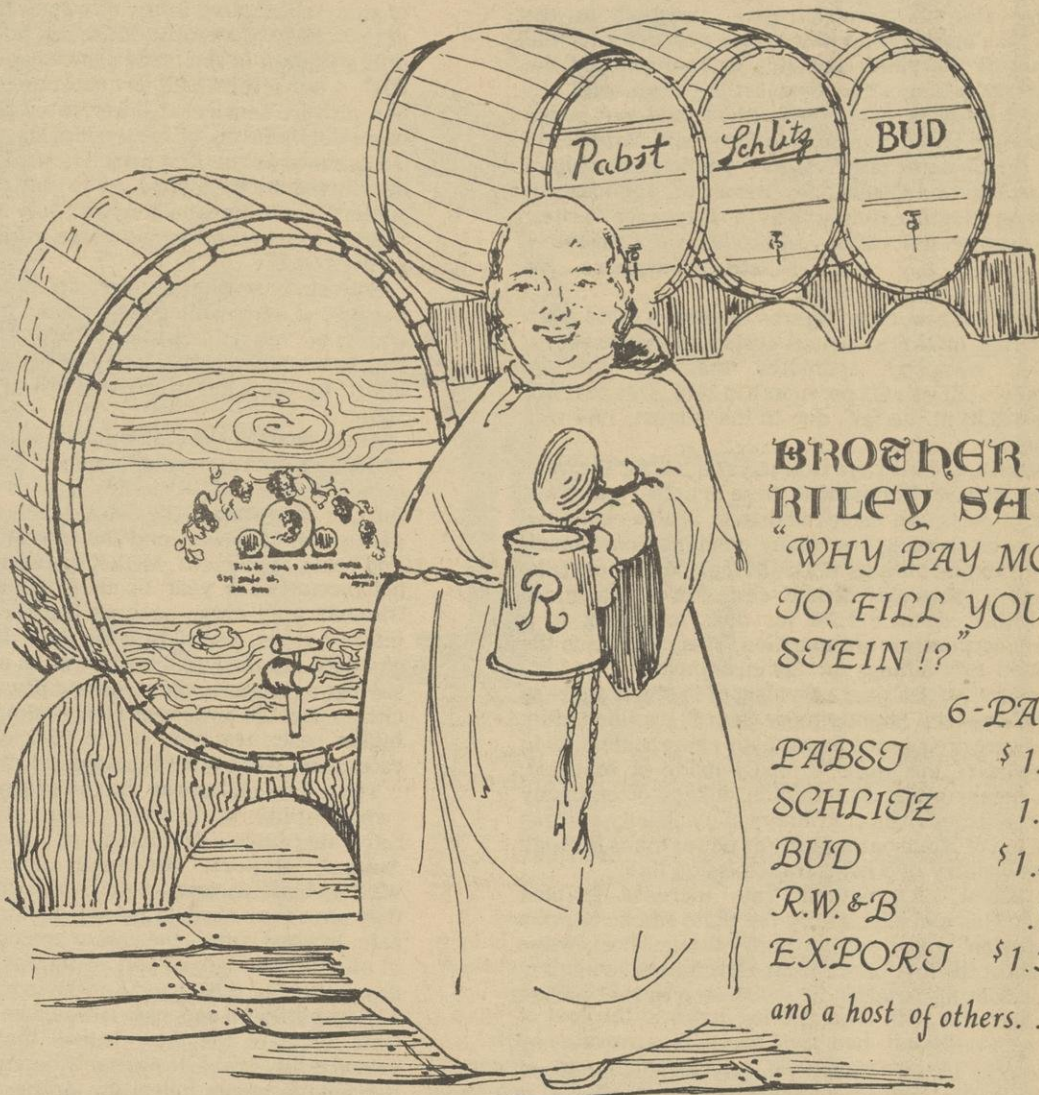 Pabst
Schlitz
BUD
R
BROTHER
RILEY SA
"WHY PAY MO
TO FILL YOU
STEIN!?"
6-PA
PABST $1.
SCHLITZ 1.
BUD $1.
R.W.&B .
EXPORT $1.
and a host of others. .